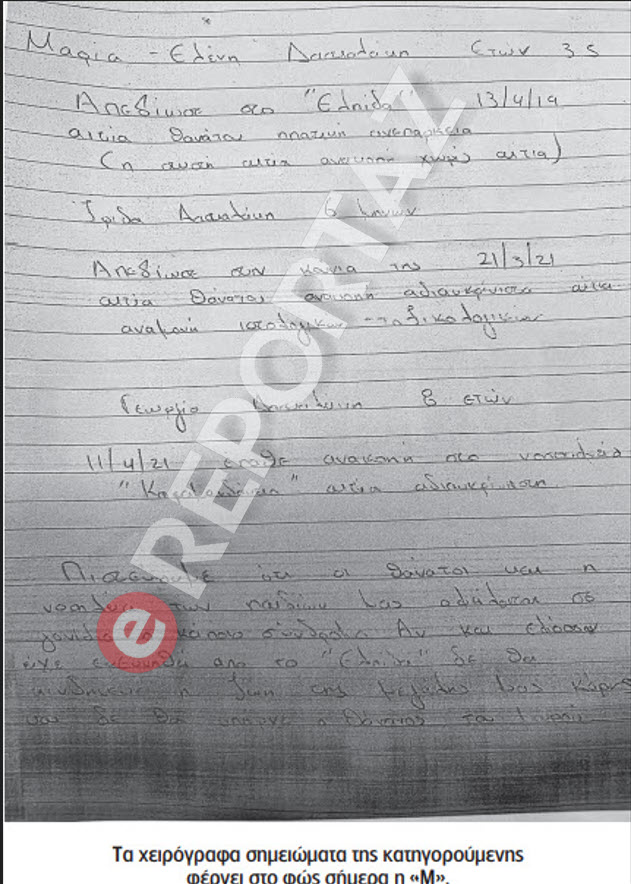 Μαρία - Ελένη Δασκαλάκη ετών 3,5
Απεβίωσε στο "Ελπίδα" 13/4/19
αιτία θανάτου ηπατική ανεπάρκεια
(η αυτή αιτία ανακοπή χωρίς αιτία)
Ίριδα Δασκαλάκη 6 μηνών
Απεβίωσε στην κούνια της 21/3/21
αιτία θάνατου ανακοπή αδιευκρίνιστα αίτια
αναμονή ιστολογικών - τοξικολογικών
Γεωργία Δασκαλάκη 8 ετών
11/4/21 έπαθε ανακοπή στο νοσοκομείο
"Καραμανδάνειο" αιτία αδιευκρίνιστη
Πιστεύουμε ότι οι θάνατοι και η
των παιδιών μας οφείλεται σε
γονίδιο ή κάποιο σύνδρομο Αν και εφόσον
είχε από το "Ελπίδα" δε θα
η ζωή της μεγάλης μας κόρης
και δε θα υπήρχε ο θάνατος
eREPORTAZ
Τα χειρόγραφα σημειώματα της κατηγορούμενης
φέρνει στο φώς σήμερα η «Μ».